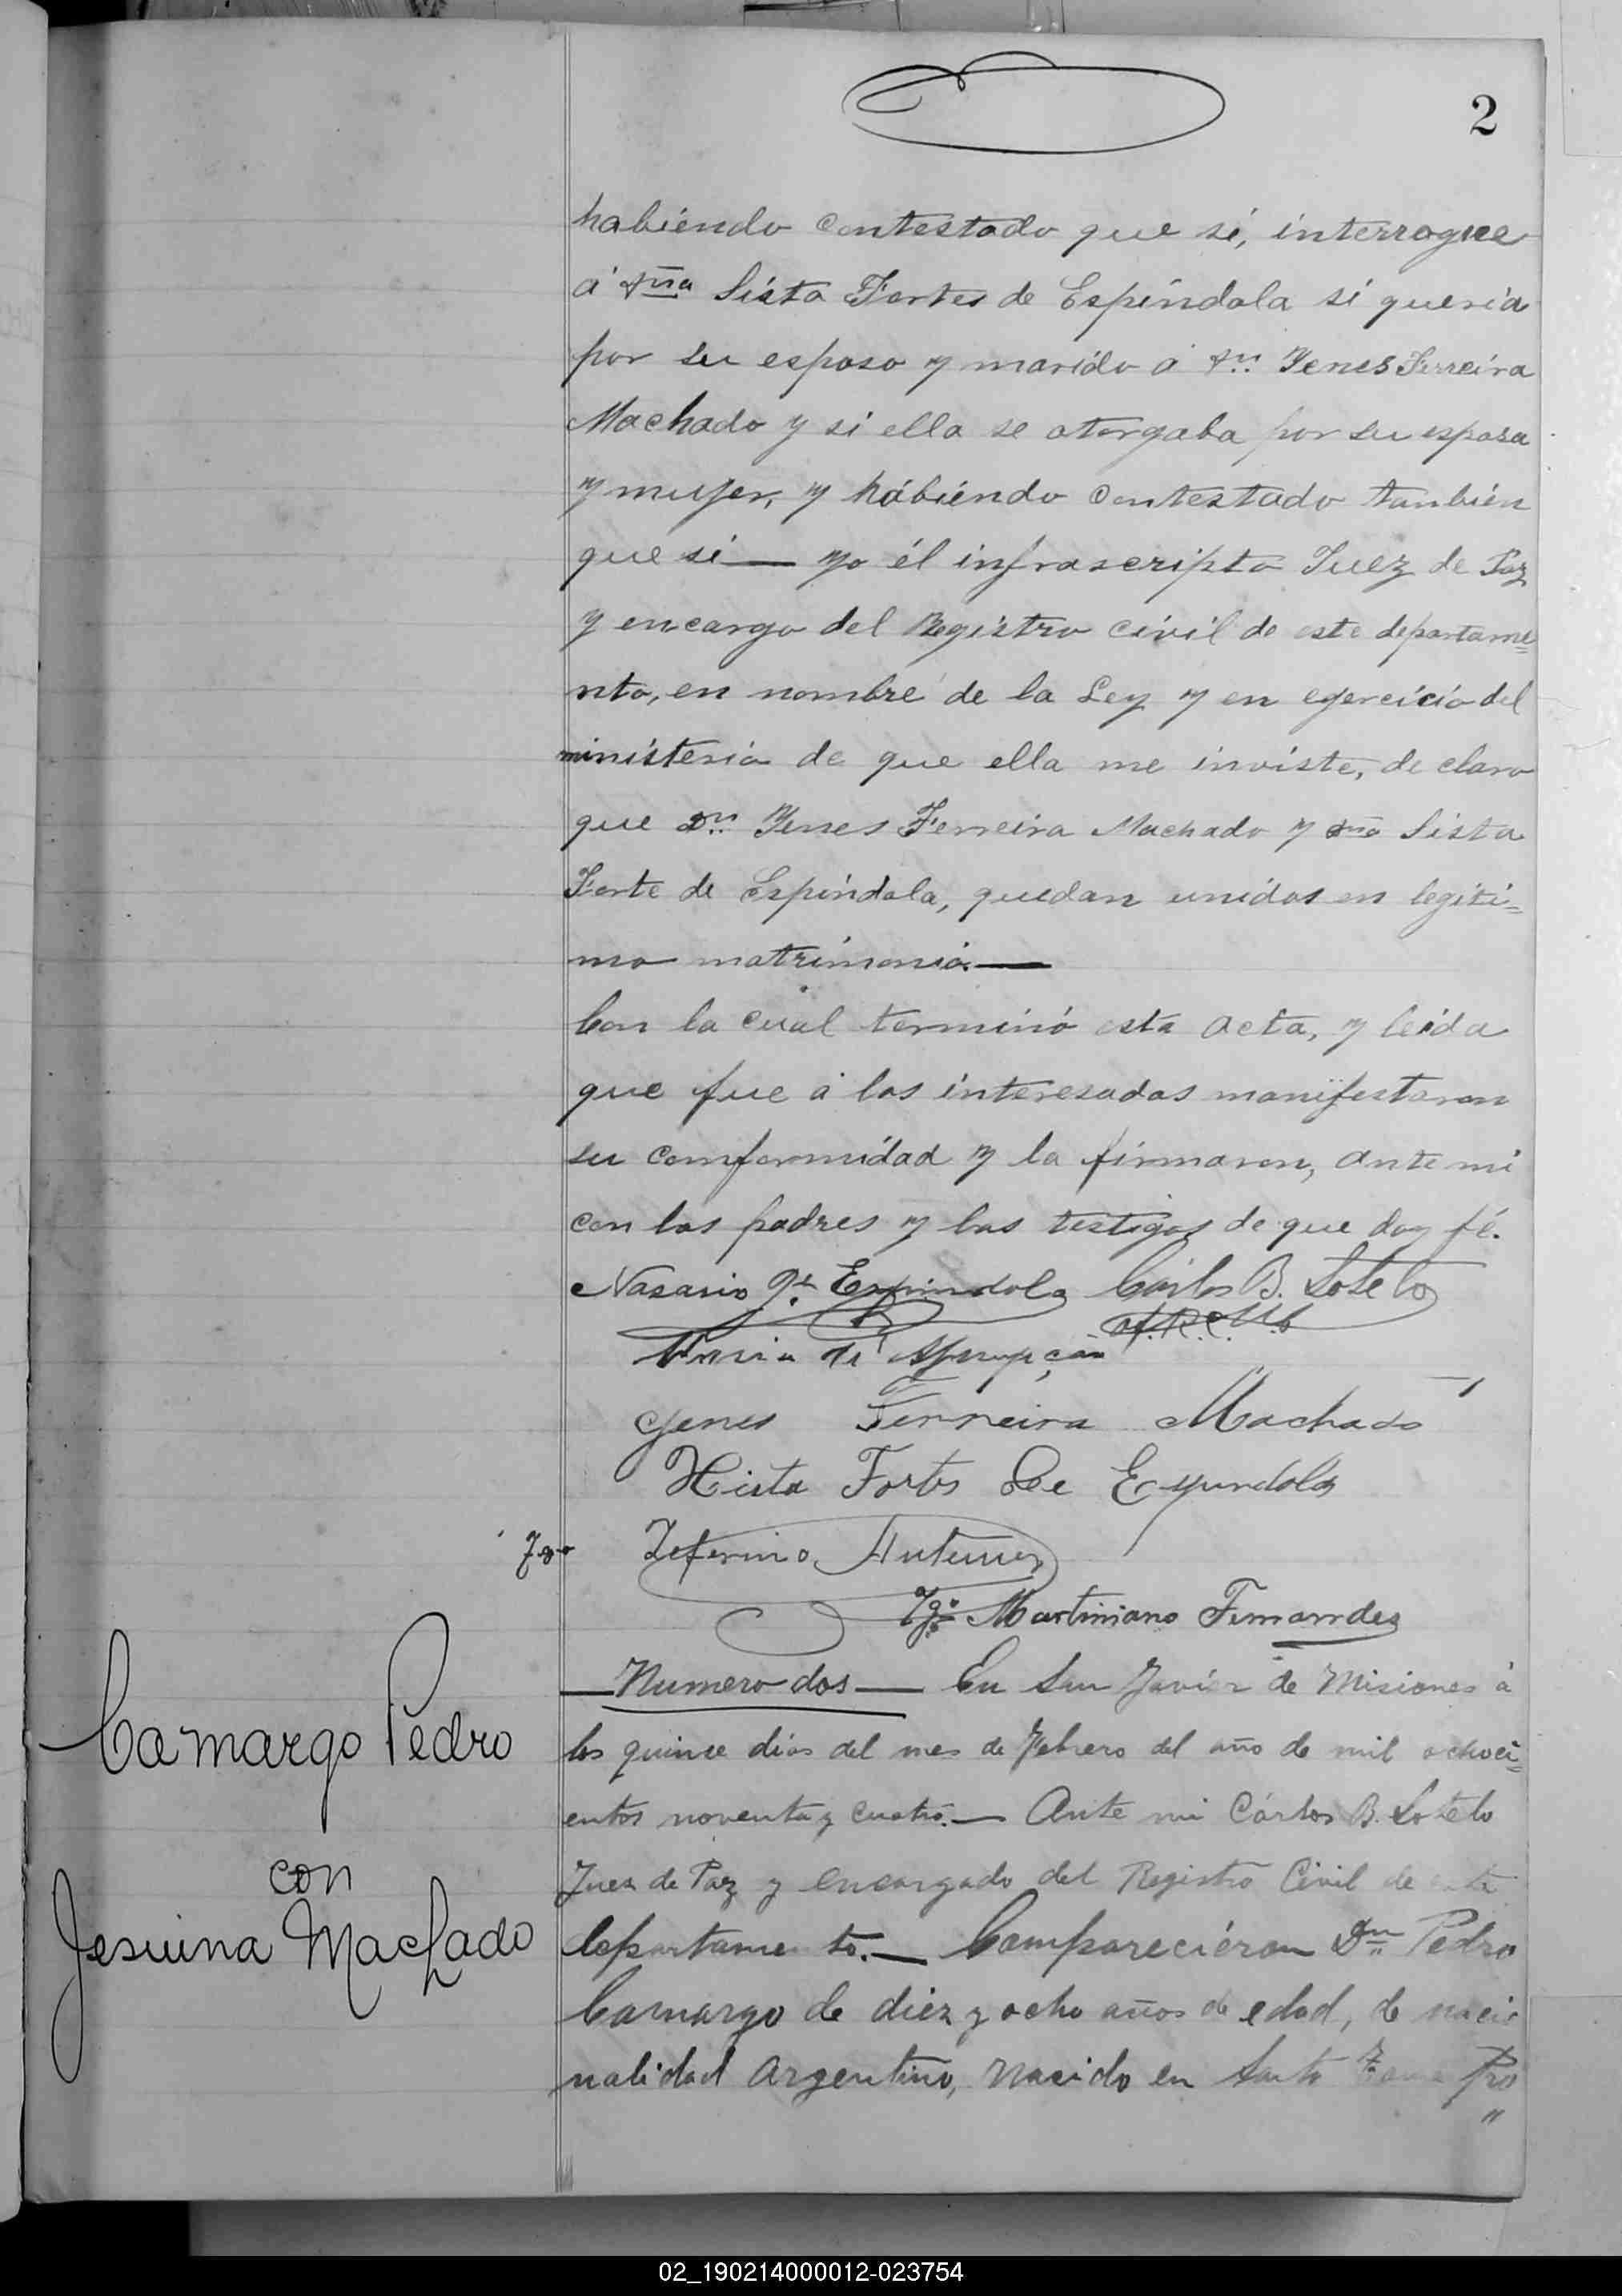 2
habiendo contestado que si, interrogue
á dña Sista Fortes de Espíndola si queria
por su esposo y marido á dn Yenes Ferreira
Machado y si ella se otorgaba por su esposa
y mujer, y habiendo contestado tanbien
que si — yo él infrascripto Juez de Paz
y encargo del Registro civil de este departame=
nto, en nombre de la Ley y en ejercicio del
ministerio de que ella me inviste, declaro
que Dn Yenes Ferreira Machado y dña Sista
Forte de Espíndola, quedan unidos en legiti=
mo matrimonio.—
Con la cual terminó esta acta, y leida
que fue á los interesados manifestaron
su comformidad y la firmaron, ante mi
con los padres y los testigos de que doy fé.
Nasario Espindola Carlos B. Sotelo
Maria de
Genes Ferreira Machado
Hista Fortes de Espindola
Tgo Zeferino Antunez
Tgo Martiniano Fernandes
— Numero dos — En San Javier de Misiones á
los quince dias del mes de Febrero del año de mil ochoci=
entos noventa y cuatro.— Ante mi Cárlos B. Sotelo
Juez de Paz y encargado del Registro Civil de este
Departamento.— Comparecieron Dn Pedro
Camargo de diez y ocho años de edad, de nacio
nalidad Argentino, nacido en Santo Tome Pro
"
Camargo Pedro
con
Jesuina Machado
02_190214000012-023754